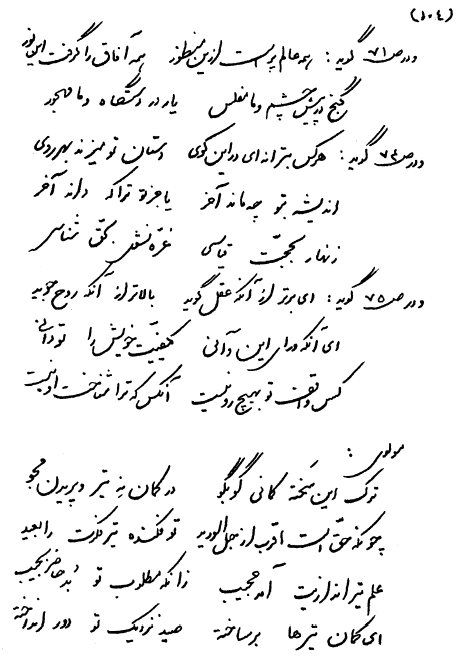 (۱۰۴)
و در ص ۷۱ گوید: همه عالم پر است از این منظور همه آفاق را گرفت این نور
گنج در پیش چشم و ما مفلس یار در دستگاه و ما مهجور
و در ص ۷۴ گوید: هر کس بترانه‌ای در این کوی دستان تو میزند بهر روی
اندیشه بتو چه ماند آخر یا جزو تراکه داند آخر
زنهار بحجت قیاسی غره نشوی بحق شناسی
و در ص ۷۵ گوید: ای برتر از آنکه عقل گوید بالاتر از آنکه روح جوید
ای آنکه ورای این و آنی کیفیت خویش را تو دانی
کس واقف تو بهیچ رو نیست آنکس که ترا شناخت او نیست
مولوی:
ترک این سخته کمانی گو بگو در کمان نه تیر و پریدن مجو
چونکه حق است اقرب از حبل الورید تو فکنده تیر فکرت را بعید
علم تیرانداریت آمد حجیب زانکه مطلوب تو بد حاضر بجیب
ای کمان تیرها بر ساخته صید نزدیک تو دور انداخته